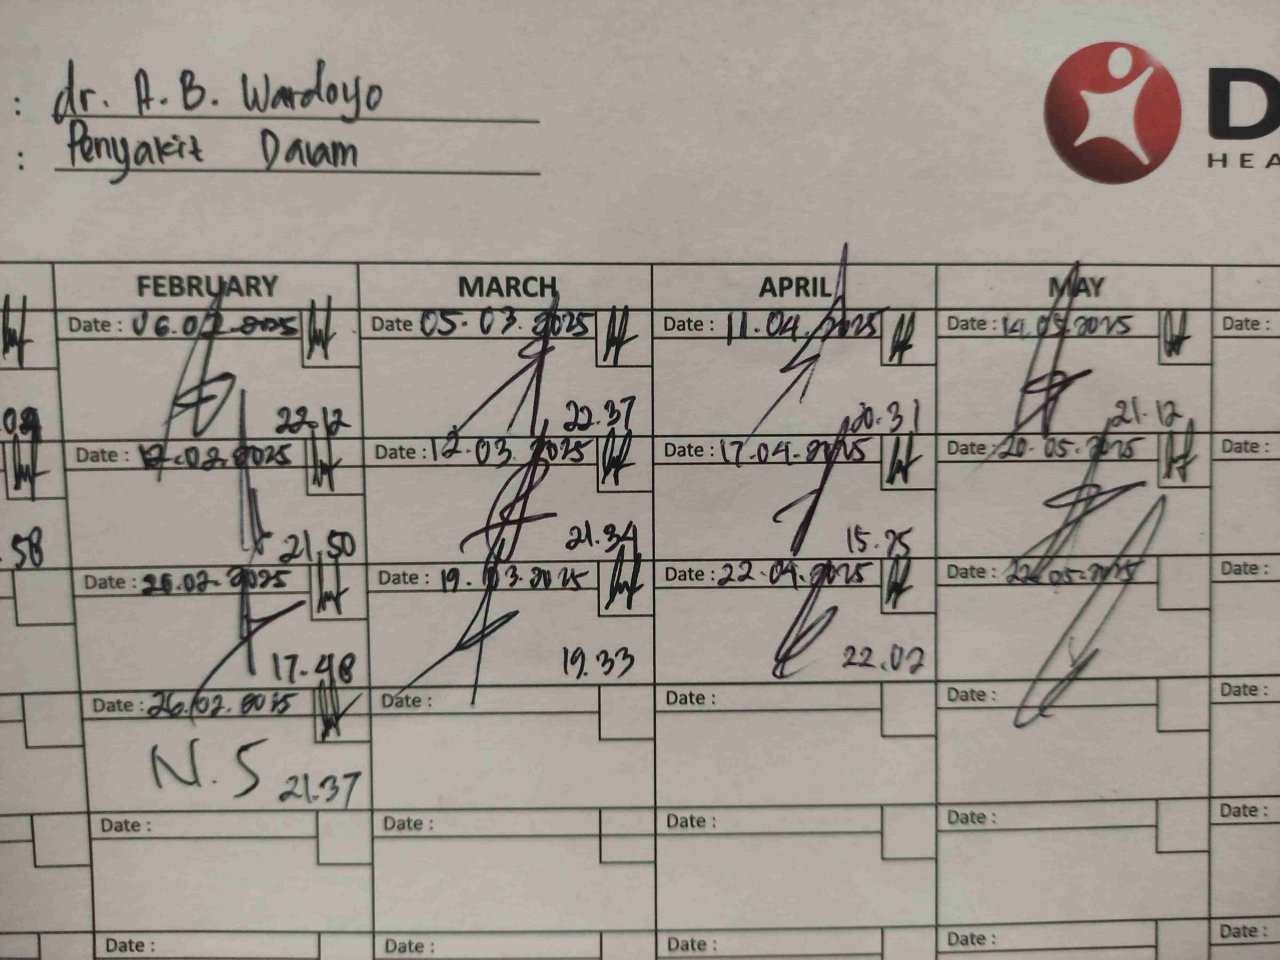 : dr. A. B. Wardoyo
: Penyakit Dalam
D
HEA
FEBRUARY MARCH APRIL MAY
Date : 06.02.2025 Date 05.03.2025 Date : 11.04.2025 Date : 14.05.2025 Date :
22.12 22.37 20.31 21.12
Date : 12.02.2025 Date : 12.03.2025 Date : 17.04.2025 Date : 20.05.2025 Date :
58 21.50 21.34 15.25
Date : 26.02.2025 Date : 19.03.2025 Date : 22.04.2025 Date : 22.05.2025 Date :
17.48 19.33 22.02
Date : 26.02.2025 Date : Date : Date : Date :
N.S 21.37
Date : Date : Date : Date : Date :
Date : Date : Date : Date : Date :